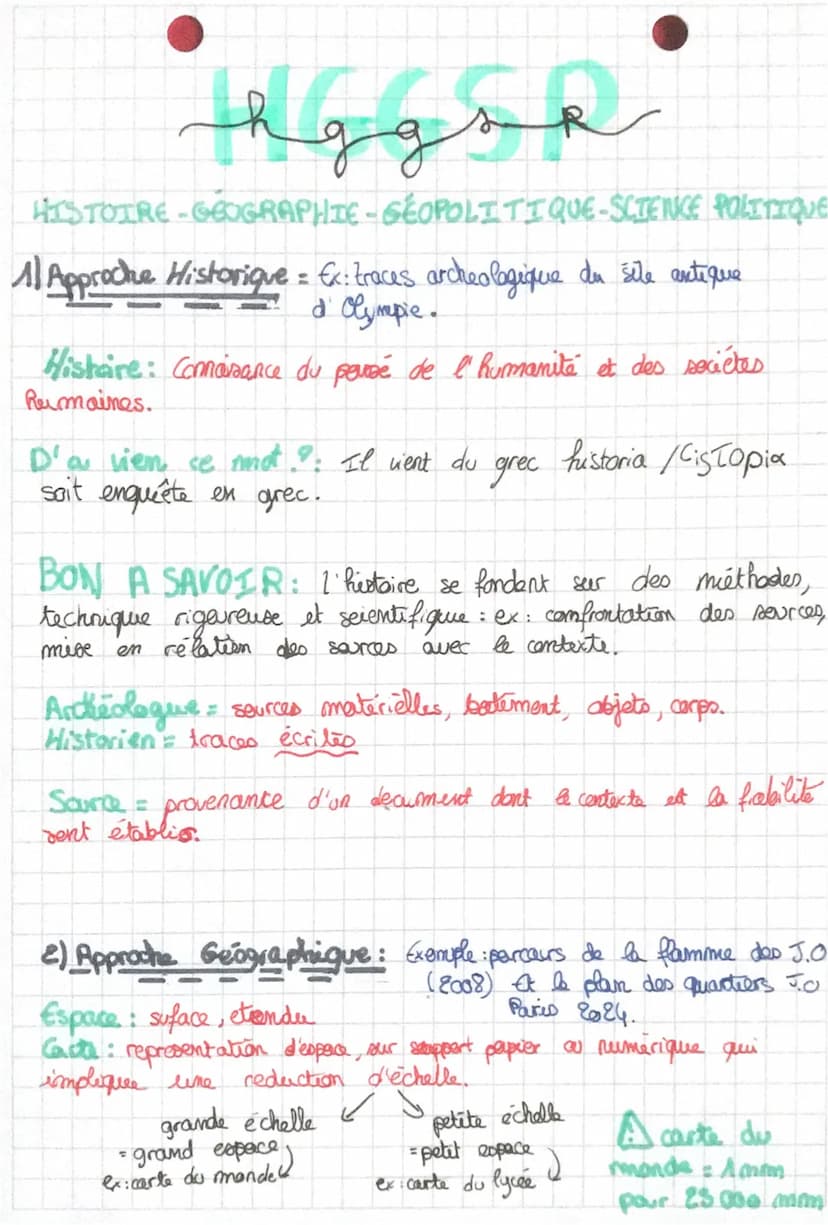 HGGSP
hggsp
HISTOIRE-GÉOGRAPHIE-GÉOPOLITIQUE-SCIENCE POLITIQUE
1) Approche Historique = Ex: traces archeologique du site antique
d'Olympie.
Histoire: Connaisance du passé de l'humanité et des sociétés
humaines.
D'où vien ce mot?: Il vient du grec historia /
soit enquête en grec.
BON A SAVOIR: l'histoire se fondent sur des méthodes,
technique rigoureuse et scientifique: ex: confrontation des sources,
mise en rélation des sources avec le contexte.
Archéologue = sources matérielles, batement, objets, corps.
Historien = traces écrites
Source = provenance d'un document dont le contexte et la fiabilité
sont établis.
2) Approche Géographique: Exemple: parcours de la flamme des J.O
(2008) Et le plan des quartiers J.O
Paris 2024.
Espace: suface, etendu
Carte: representation d'espace, sur support papier ou numérique qui
implique une reduction d'échelle.
grande échelle petite échelle
= grand espace = petit espace
ex: carte du monde ex: carte du lycée
⚠ carte du
monde = 1mm
pour 25 000 mm